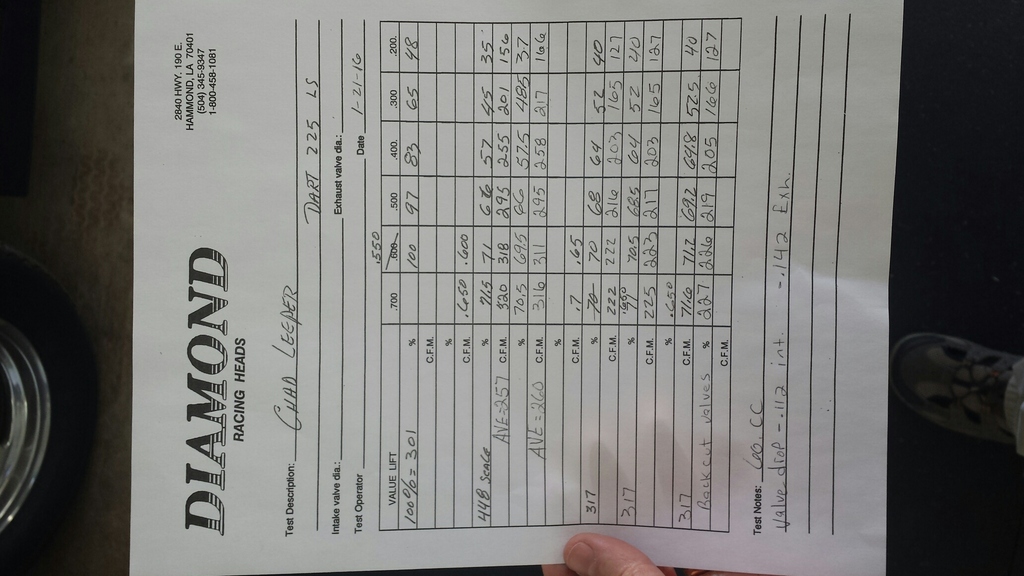 DIAMOND
RACING HEADS
2840 HWY. 190 E.
HAMMOND, LA 70401
(504) 345-9347
1-800-458-1081
Test Description: CHAD LEEPER
DART 225 LS
Intake valve dia.: Exhaust valve dia.:
Test Operator Date 1-21-16
.550
VALUE LIFT .700 .600 .500 .400 .300 .200
100% = 301 % 100 97 83 65 48
C.F.M.
%
C.F.M. .650 .600
448 SCALE % 71.5 71 66 57 45 35
AVE=257 C.F.M. 320 318 295 255 201 156
% 70.5 69.5 66 57.5 48.5 37
AVE=260 C.F.M. 316 311 295 258 217 166
%
C.F.M. .7 .65
317 % 70 70 68 64 52 40
C.F.M. 222 222 216 203 165 127
317 % 70.5 68.5 64 52 40
C.F.M. 225 223 217 203 165 127
% .650
317 C.F.M. 71.6 71.2 69.2 64.8 52.5 40
Backcut valves % 227 226 219 205 166 127
C.F.M.
Test Notes: C.C
Valve drop - .112 int. - .142 Exh.